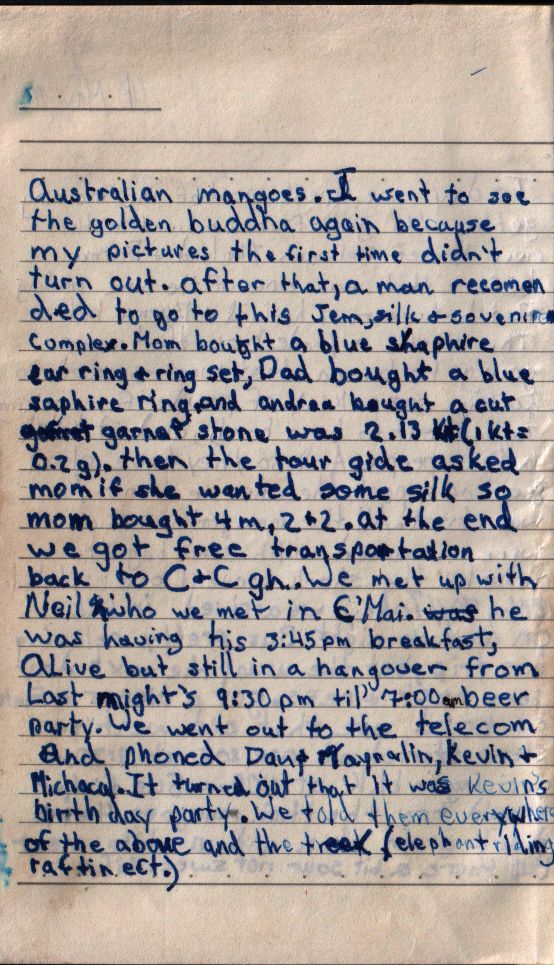 Australian mangoes. I went to see
the golden buddha again because
my pictures the first time didn't
turn out. after that, a man recomen
ded to go to this Jem, silk & sovenire
complex. Mom bought a blue shaphire
ear ring & ring set, Dad bought a blue
saphire ring, and andrea bought a cut
garnet stone was 2.13 kt (1 kt=
0.2 g). then the tour gide asked
mom if she wanted some silk so
mom bought 4 m, 2+2. at the end
we got free transportation
back to C+C gh.. We met up with
Neil who we met in C'Mai. was he
was having his 3:45 pm breakfast,
Alive but still in a hangover from
Last might's 9:30 pm til' 7:00 am beer
party. We went out to the telecom
and phoned Dan, Kevin +
It turned out that it was Kevin's
birth day party. We told them everywhere
of the above and the treek (elephant riding
raftin ect.)